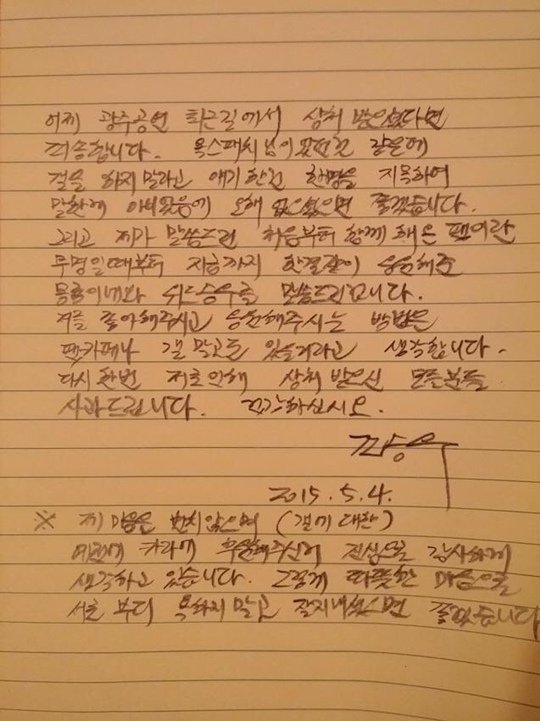 어제 광주공연 퇴근길에서 상처 받으셨다면
죄송합니다. 욕스패치님이 있던건 같은데
걸을 하지말라고 얘기한건 한명을 지목하여
말한게 아니었음에 오해 없으셨으면 좋겠습니다.
그리고 제가 말씀드린 처음부터 함께 해온 팬이란
무명일때부터 지금까지 한결같이 응원해준
몽룡이네와 위드승우를 말씀드린겁니다.
저를 좋아해주시고 응원해주시는 방법은
팬카페나 갤 말고도 있을거라고 생각합니다.
다시한번 저로인해 상처 받으신 모든분들
사과드립니다. 건강하십시오.
2015. 5. 4.
※ 제 마음은 변치않으며 (갤에 대한)
예전에 카라에 투표해주신거 진심으로 감사하게
생각하고 있습니다. 그렇게 따뜻한 마음으로
서로 부디 욕하지말고 잘지내셨으면 좋겠습니다